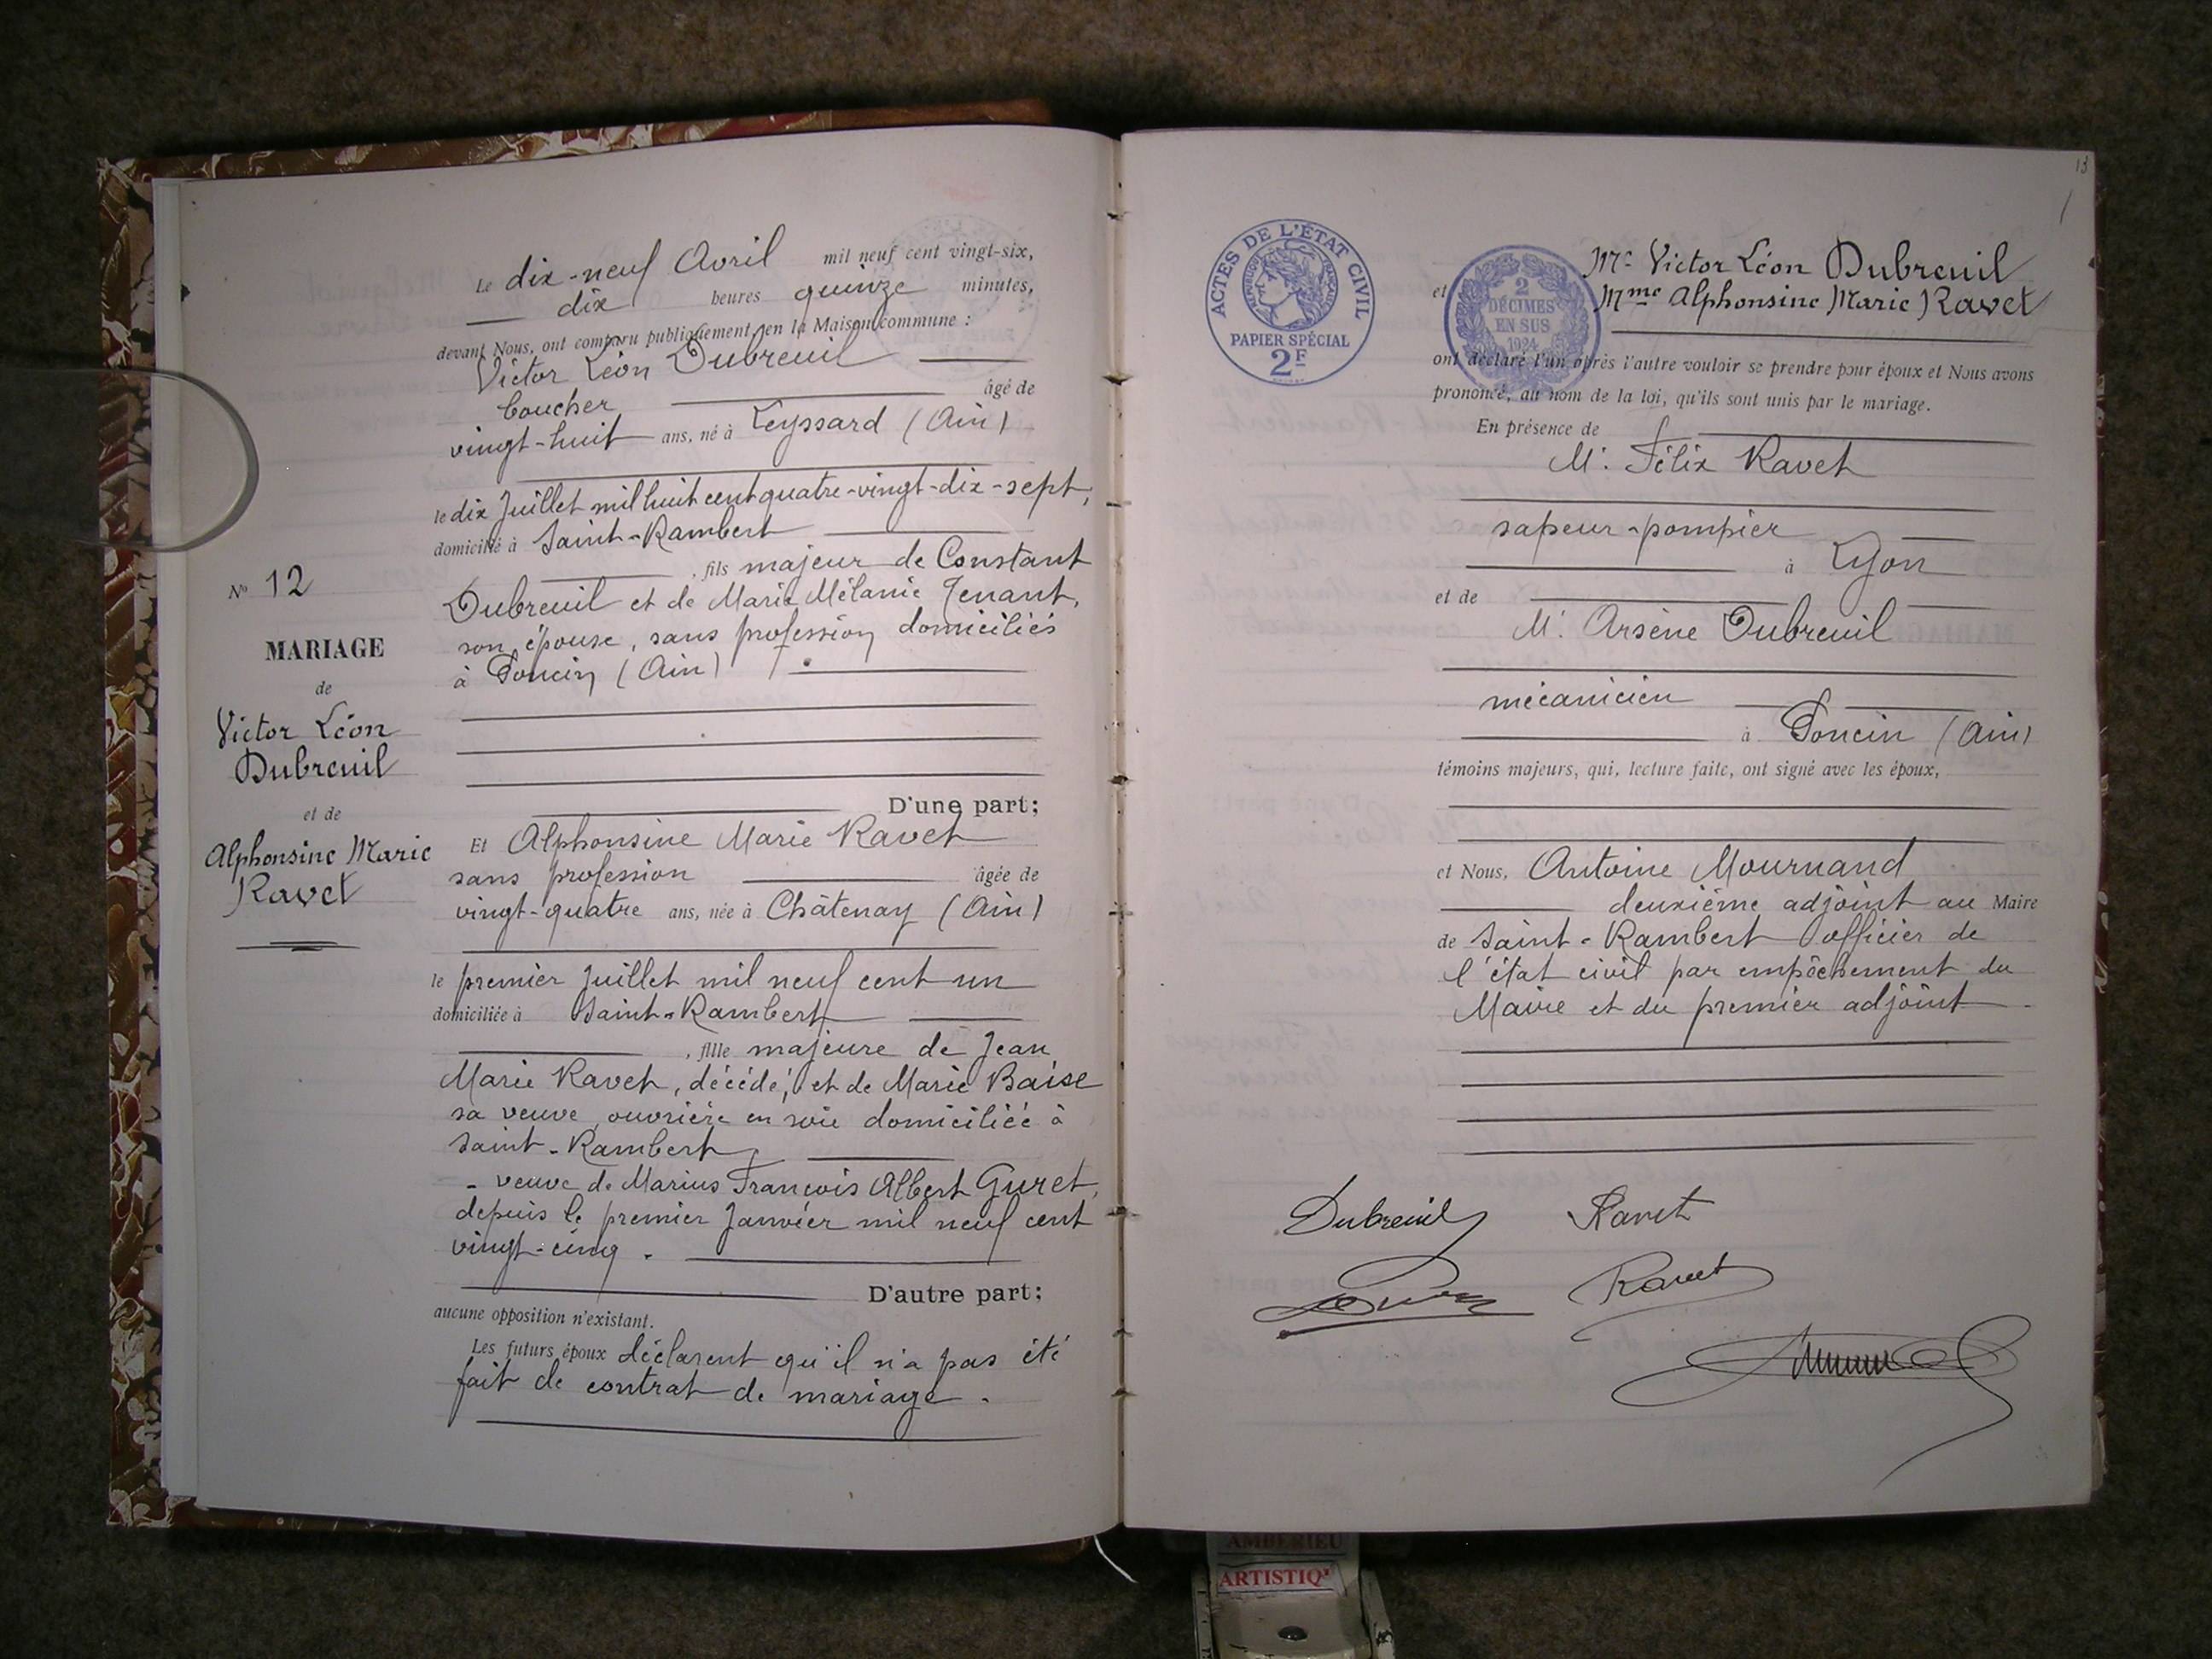 Le dix-neuf Avril mil neuf cent vingt-six,
dix heures quinze minutes,
devant Nous, ont comparu publiquement en la Maison commune :
Victor Léon Dubreuil
boucher âgé de
vingt-huit ans, né à Leyssard (Ain)
le dix Juillet mil huit cent quatre-vingt-dix-sept,
domicilié à Saint-Rambert
, fils majeur de Constant
Dubreuil et de Marie Mélanie Tenant,
son épouse, sans profession domiciliés
à Poncin (Ain)
D'une part;
Et Alphonsine Marie Ravet
sans profession âgée de
vingt-quatre ans, née à Châtenay (Ain)
le premier Juillet mil neuf cent un
domiciliée à Saint-Rambert
, fille majeure de Jean
Marie Ravet, décédé, et de Marie Baise
sa veuve, ouvrière en soie domiciliée à
Saint-Rambert,
- veuve de Marius François Albert Guret,
depuis le premier Janvier mil neuf cent
vingt-cinq.
D'autre part;
aucune opposition n'existant.
Les futurs époux déclarent qu'il n'a pas été
fait de contrat de mariage.
No 12
MARIAGE
de
Victor Léon
Dubreuil
et de
Alphonsine Marie
Ravet
13
ACTES DE L'ÉTAT CIVIL
RÉPUBLIQUE FRANÇAISE
PAPIER SPÉCIAL
2F
2
DÉCIMES
EN SUS
1924
Mr Victor Léon Dubreuil
et Mme Alphonsine Marie Ravet
ont déclaré l'un après l'autre vouloir se prendre pour époux et Nous avons
prononcé, au nom de la loi, qu'ils sont unis par le mariage.
En présence de
Mr Félix Ravet
sapeur-pompier
à Lyon
et de
Mr Arsène Dubreuil
mécanicien
à Poncin (Ain)
témoins majeurs, qui, lecture faite, ont signé avec les époux,
et Nous, Antoine Mournand
deuxième adjoint au Maire
de Saint-Rambert officier de
l'état civil par empêchement du
Maire et du premier adjoint.
Dubreuil Ravet
Ravet
AMBERIEU
ARTISTIQ